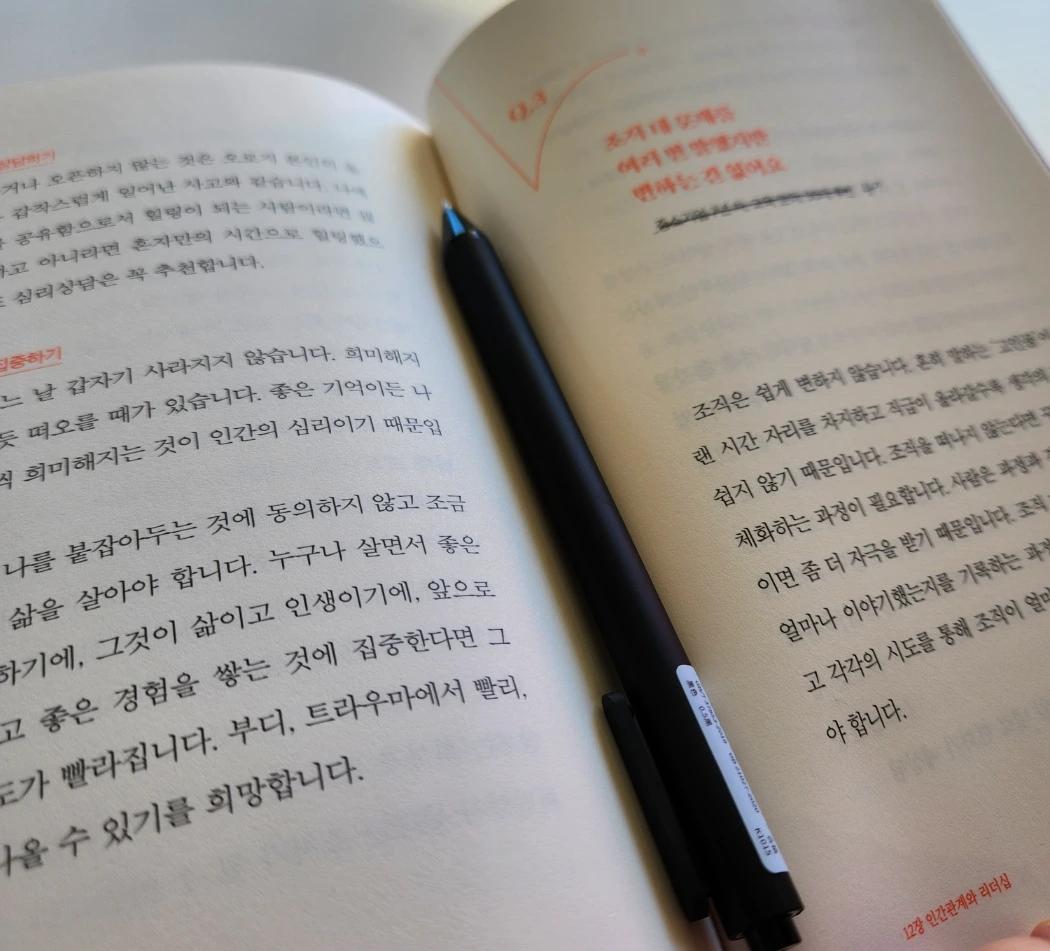 상담하기
거나 오픈하지 않는 것은 오로지 본인의
갑작스럽게 일어난 사고와 같습니다. 나에
공유함으로서 힐링이 되는 사람이라면
하고 아니라면 혼자만의 시간으로 힐링했으
심리상담은 꼭 추천합니다.
집중하기
느 날 갑자기 사라지지 않습니다. 희미해지
듯 떠오를 때가 있습니다. 좋은 기억이든 나
씩 희미해지는 것이 인간의 심리이기 때문입
나를 붙잡아두는 것에 동의하지 않고 조금
삶을 살아야 합니다. 누구나 살면서 좋은
하기에, 그것이 삶이고 인생이기에, 앞으로
고 좋은 경험을 쌓는 것에 집중한다면 그
도가 빨라집니다. 부디, 트라우마에서 빨리,
나올 수 있기를 희망합니다.
Q.3
조직 내 문제를
여러 번 말했지만
변하는 건 없어요
조직은 쉽게 변하지 않습니다. 흔히 말하는 '고인물'이
랜 시간 자리를 차지하고 직급이 올라갈수록 생각의
쉽지 않기 때문입니다. 조직을 떠나지 않는다면
체화하는 과정이 필요합니다. 사람은 과정과
이면 좀 더 자극을 받기 때문입니다. 조직
얼마나 이야기했는지를 기록하는 과정
고 각각의 시도를 통해 조직이 얼마
야 합니다.
12장 인간관계와 리더십
黑色 0.5
K1015